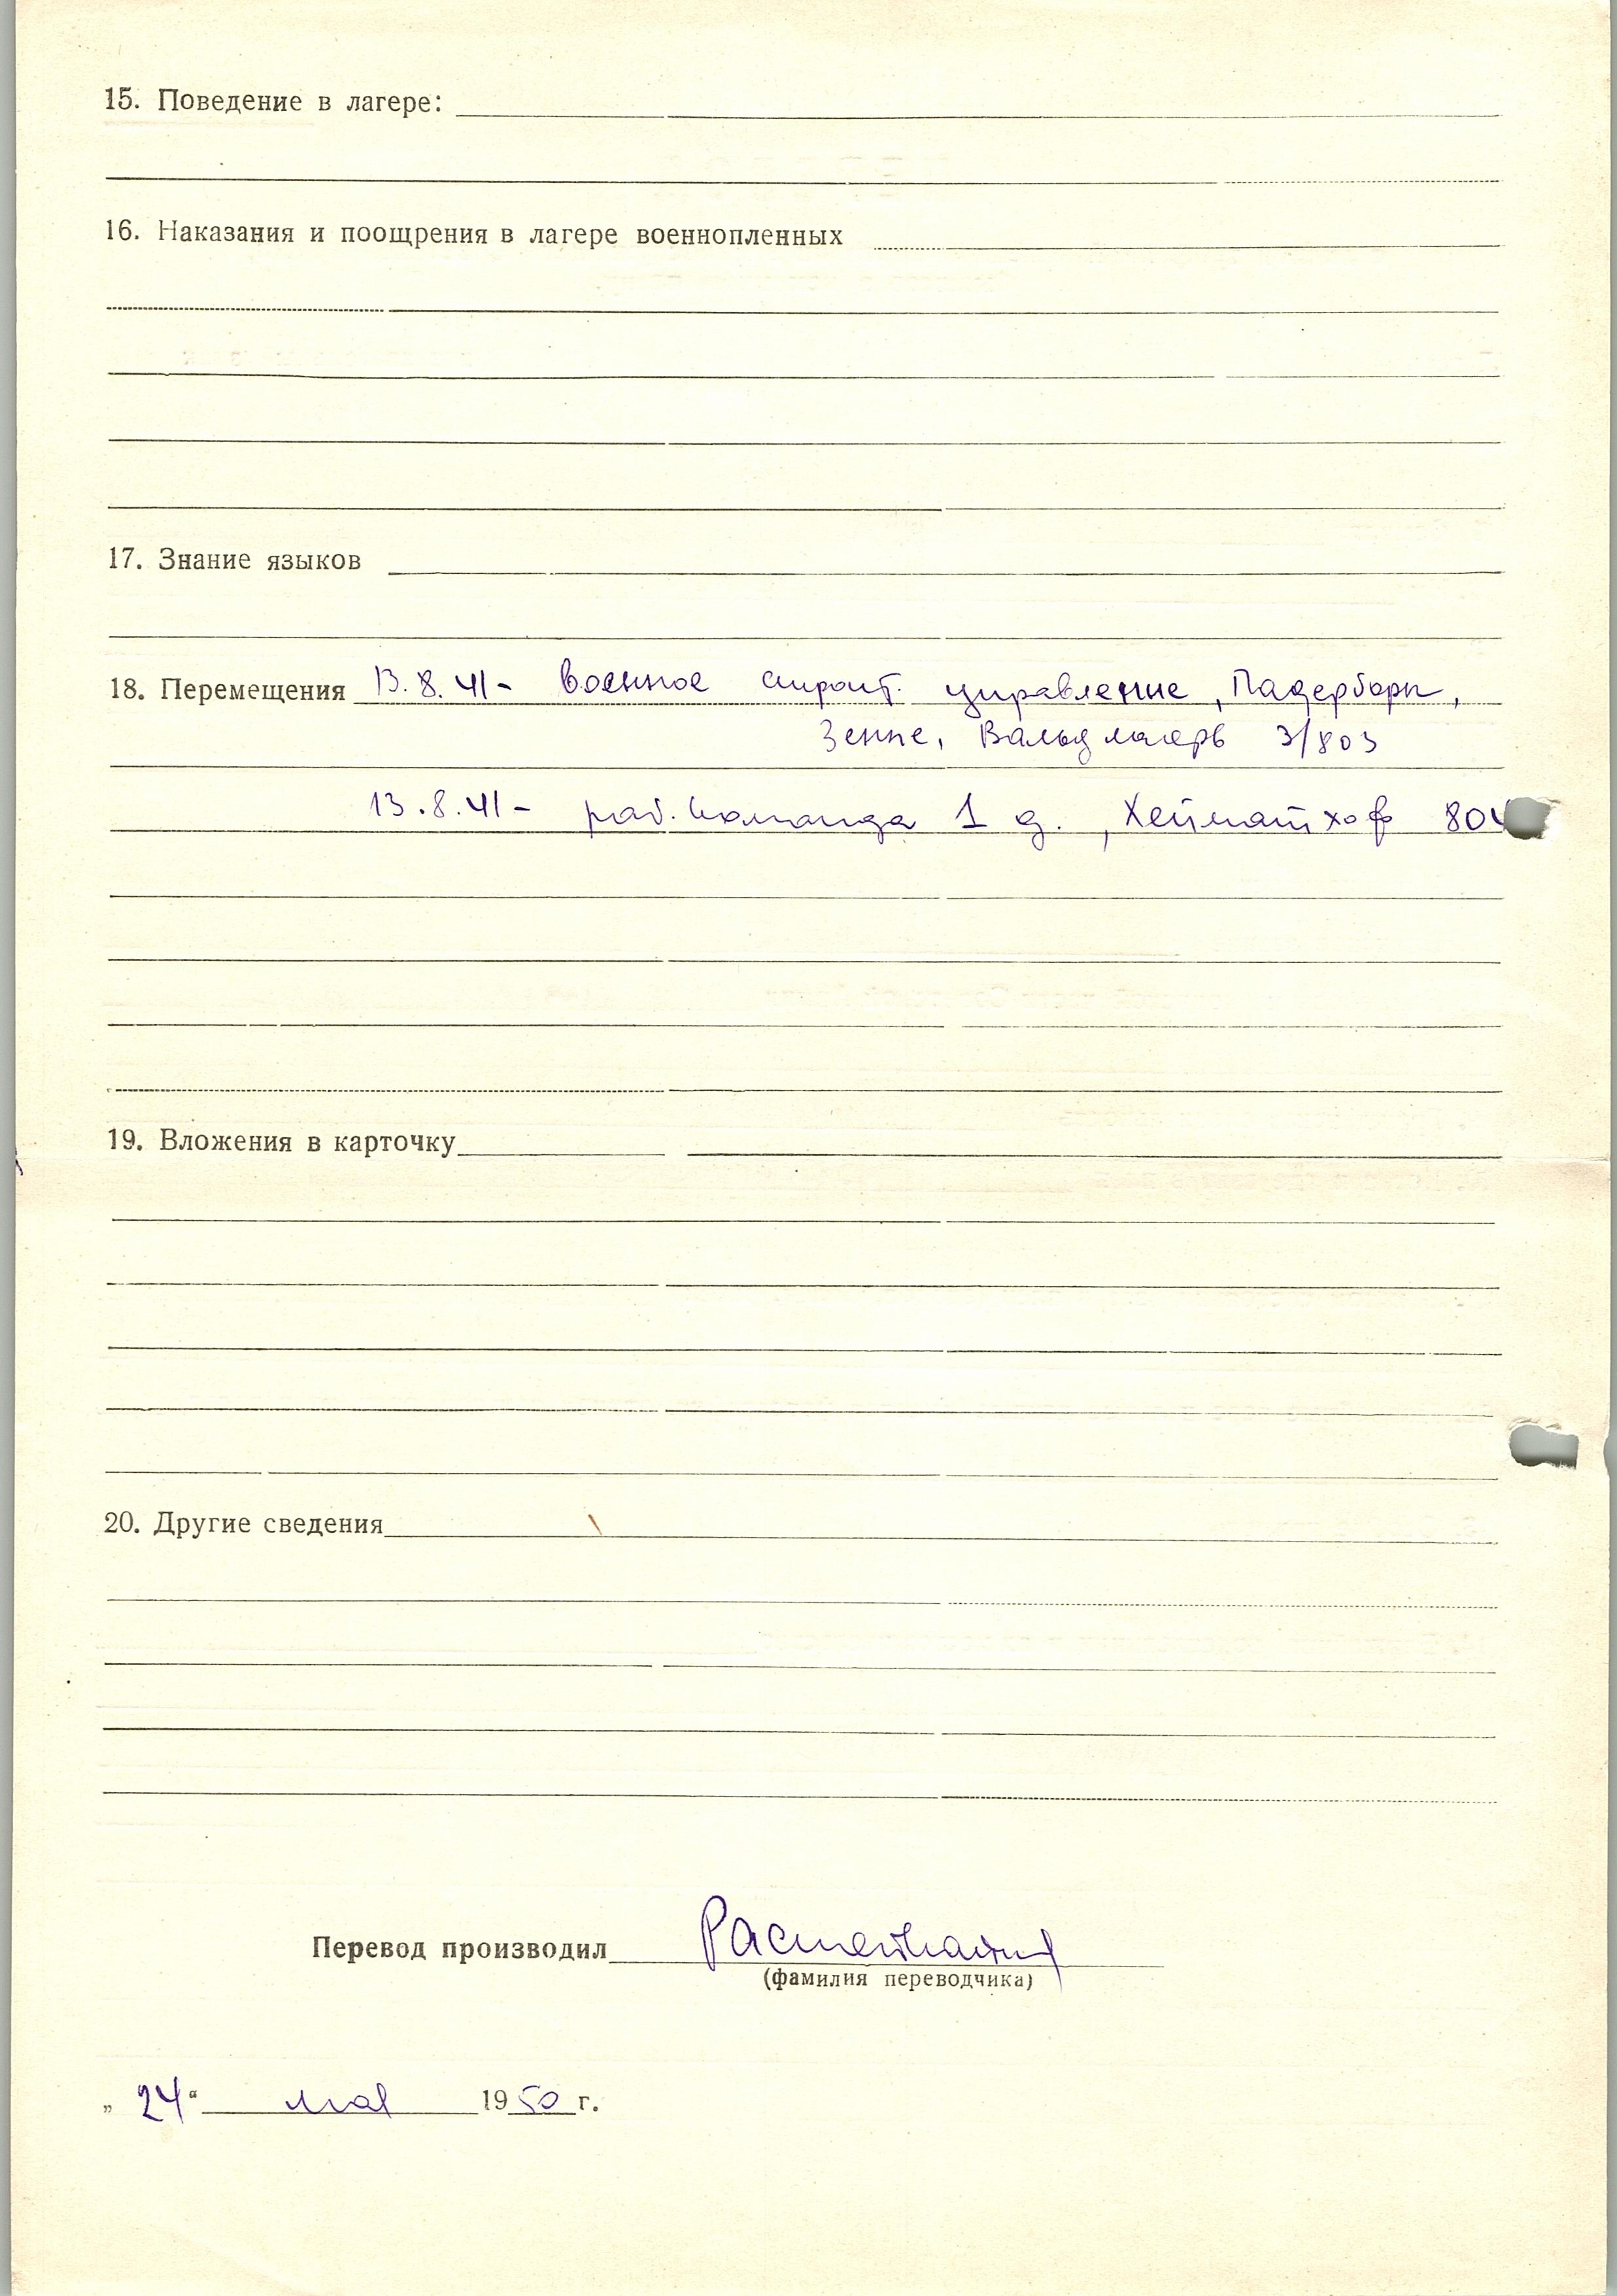 15. Поведение в лагере:
16. Наказания и поощрения в лагере военнопленных
17. Знание языков
18. Перемещения 13.8.41 - военное строит. управление, Падерборн,
Зенне, Вальдлагерь 3/803
13.8.41 - раб. команда 1 д., Хейматхоф 804
19. Вложения в карточку
20. Другие сведения
Перевод производил
(фамилия переводчика)
„ 24 “ мая 1950 г.